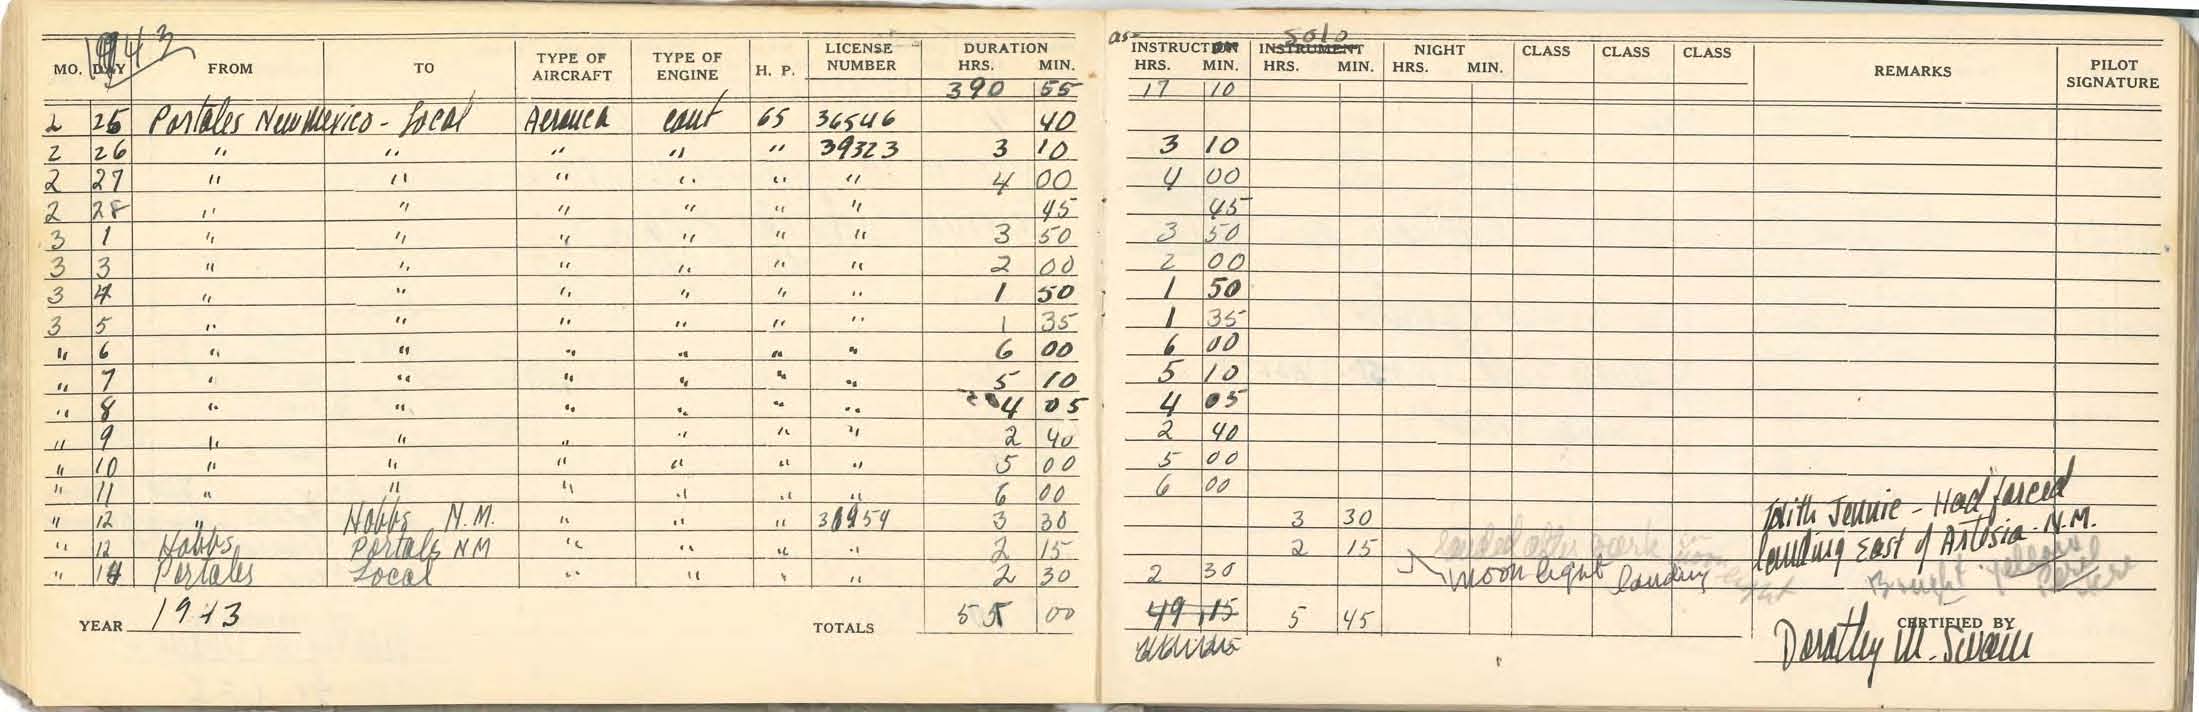 1943
MO. DAY FROM TO TYPE OF AIRCRAFT TYPE OF ENGINE H. P. LICENSE NUMBER DURATION HRS. MIN. as INSTRUCTION HRS. MIN. INSTRUMENT solo HRS. MIN. NIGHT HRS. MIN. CLASS CLASS CLASS REMARKS PILOT SIGNATURE
390 55 17 10
2 25 Portales New Mexico - Local Aeronca cont 65 36546 40
2 26 " " " " " 39323 3 10 3 10
2 27 " " " " " " 4 00 4 00
2 28 " " " " " " 45 45
3 1 " " " " " " 3 50 3 50
3 3 " " " " " " 2 00 2 00
3 4 " " " " " " 1 50 1 50
3 5 " " " " " " 1 35 1 35
" 6 " " " " " " 6 00 6 00
" 7 " " " " " " 5 10 5 10
" 8 " " " " " " 4 05 4 05
" 9 " " " " " " 2 40 2 40
" 10 " " " " " " 5 00 5 00
" 11 " " " " " " 6 00 6 00
" 12 " Hobbs N.M. " " " 3 30 3 30 With Jennie - Had forced
" 12 Hobbs Portals NM " " " " 2 15 2 15 landed after dark in moon light landing East of Artesia - N.M.
" 14 Portales Local " " " " 2 30 2 30 Moon light landing Brought
YEAR 1943 TOTALS 55 00 49 15 5 45 CERTIFIED BY
Dorothy M. Swain